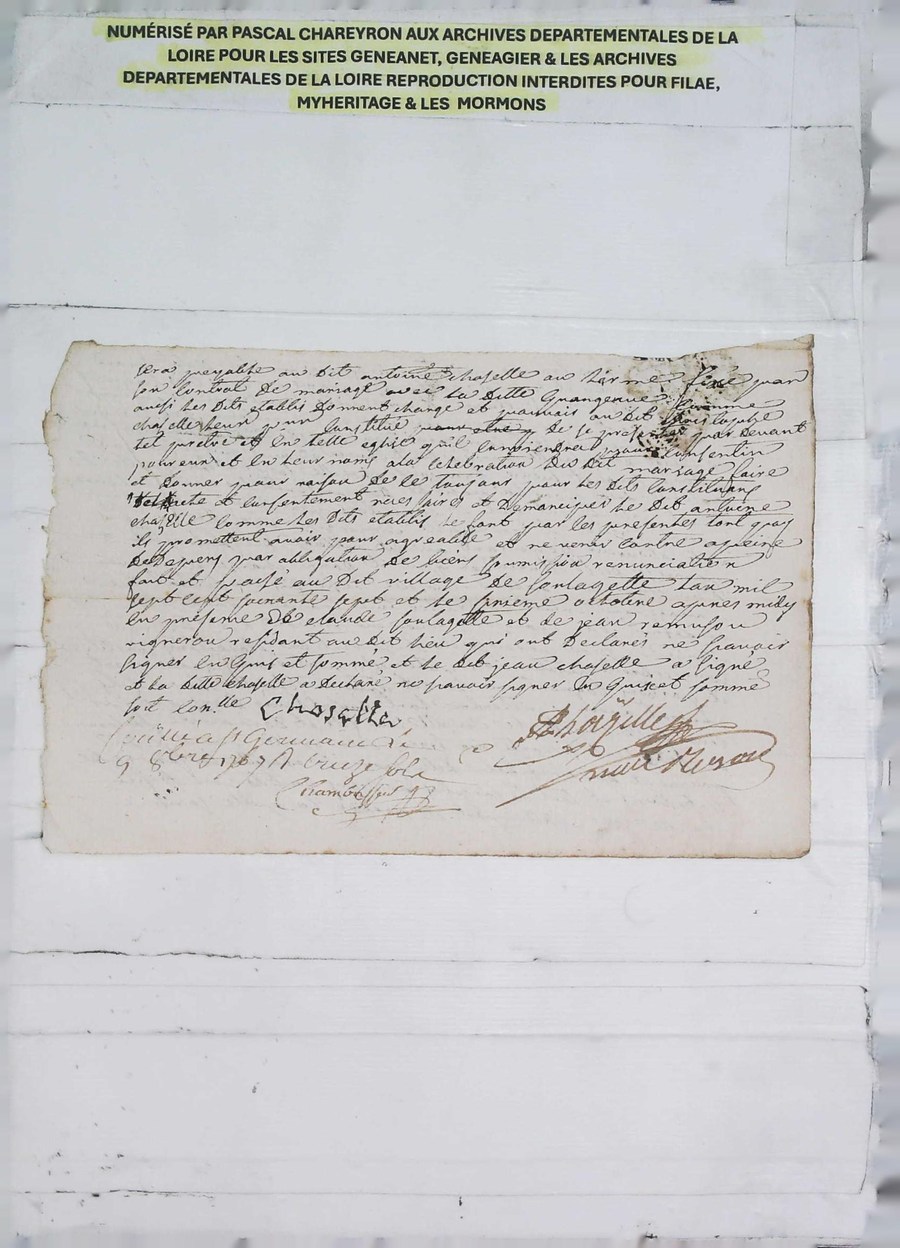 NUMÉRISÉ PAR PASCAL CHAREYRON AUX ARCHIVES DEPARTEMENTALES DE LA
LOIRE POUR LES SITES GENEANET, GENEAGIER & LES ARCHIVES
DEPARTEMENTALES DE LA LOIRE REPRODUCTION INTERDITES POUR FILAE,
MYHERITAGE & LES MORMONS
sera payable au dit antoine chaselle au terme fixé par
son contrat de mariage avec la ditte Grangeneuve
aussi les dits etablis donnent charge et pouvoir au dit
chaselle leur constitué de se par devant
tel pretre et en telle eglise qu'il conviendra pour consentir
pour eux et en leur noms a la celebration du dit mariage faire
et donner pour raison de ce toujours pour les dits constituans
et consentement necessaires et Demanciper le dit antoine
chaselle comme les dits etablis le font par les presentes tout quoy
ils promettent avoir pour agreable et ne venir contre a peine
de depens par obligation de biens soumission renunciation
fait et passé au dit village de soulagette l'an mil
sept cent soixante sept et le octobre apres midy
en presence de claude soulagette et de jean
vigneron residant au dit lieu qui ont declarés ne savoir
signer enquis et sommé et le dit jean chaselle a signé
et la ditte chaselle a declaré ne savoir signer enquis et sommé
soit con.lle Chaselle
a St Germain
9 8bre 1767 R treize sols